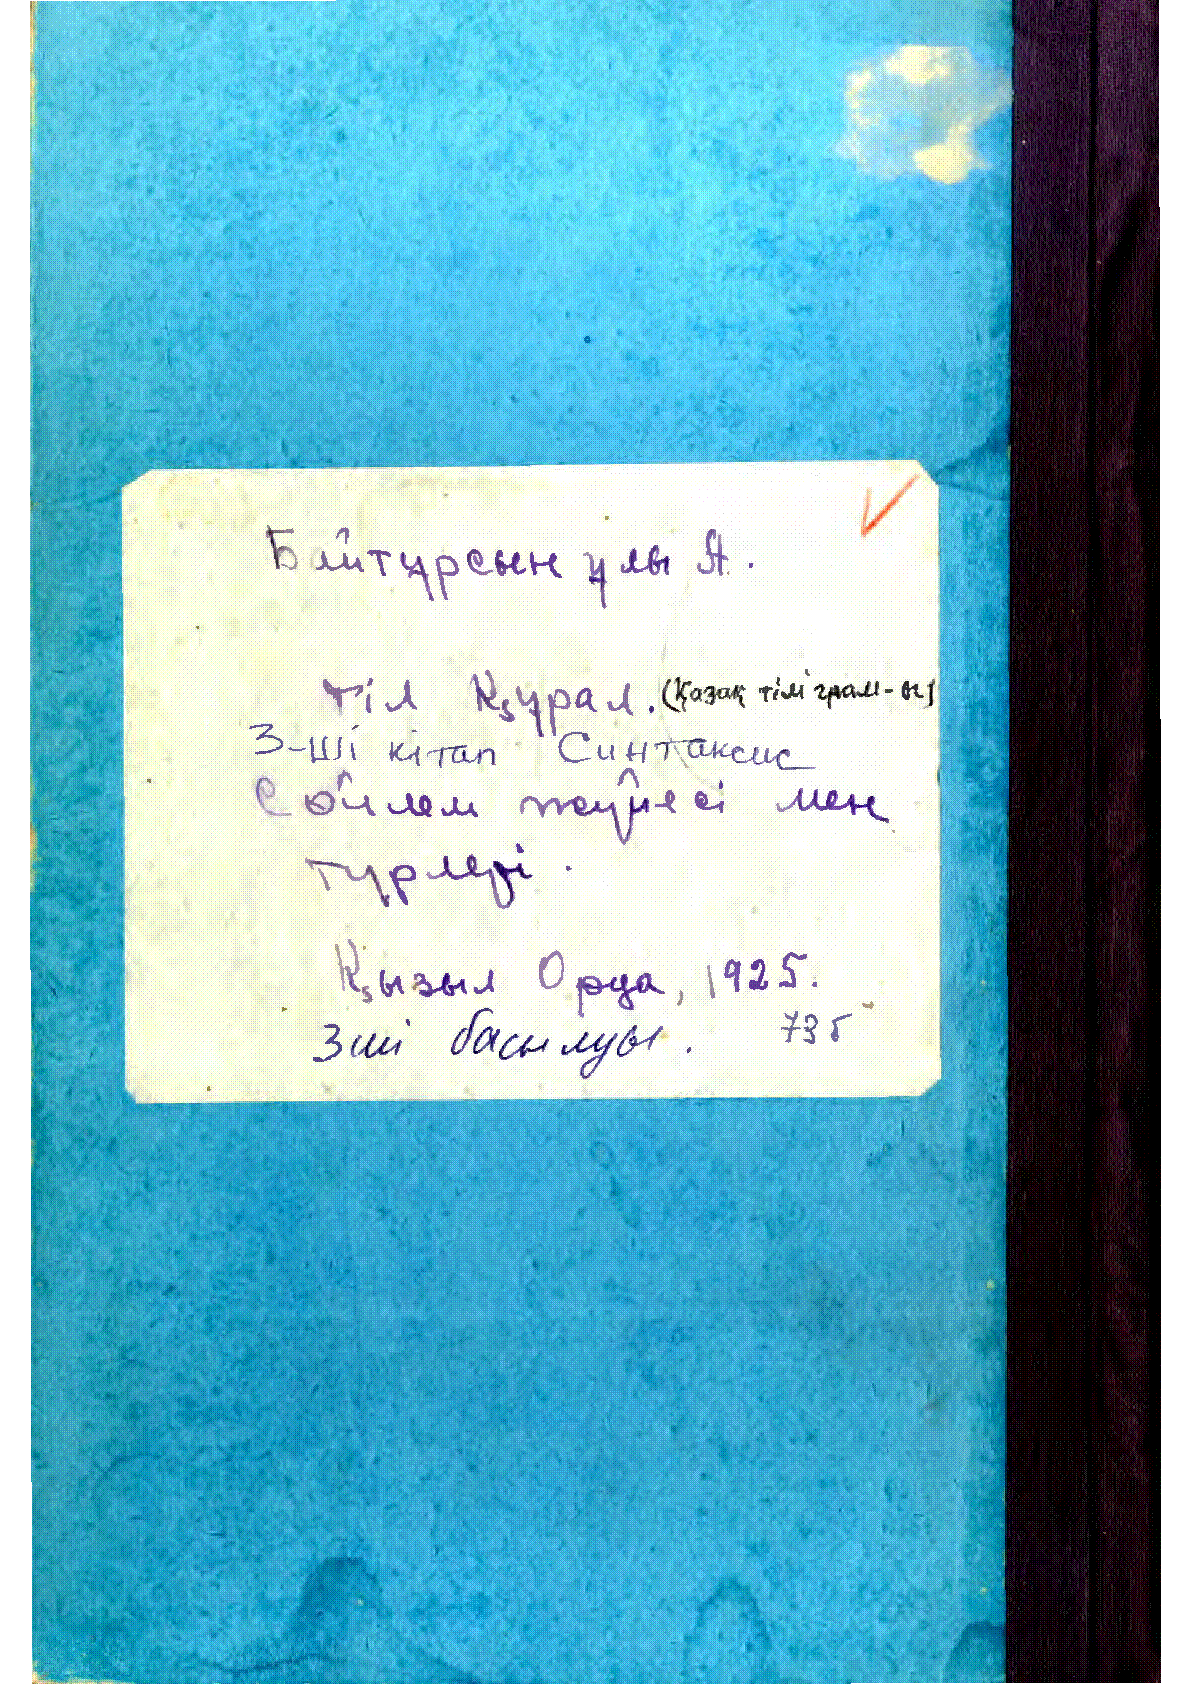 Байтұрсын ұлы А.
Тіл Құрал. (Қазақ тілі грам-ы)
3-ші кітап Синтаксис
Сөйлем жүйесі мен
түрлері.
Қызыл Орда, 1925.
3ші басылуы. 73б